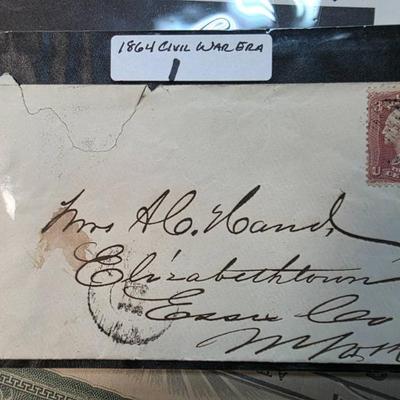 1864 CIVIL WAR ERA
1
3
U
Mrs A. C. Hand,
Elizabethtown
Essex Co
N York